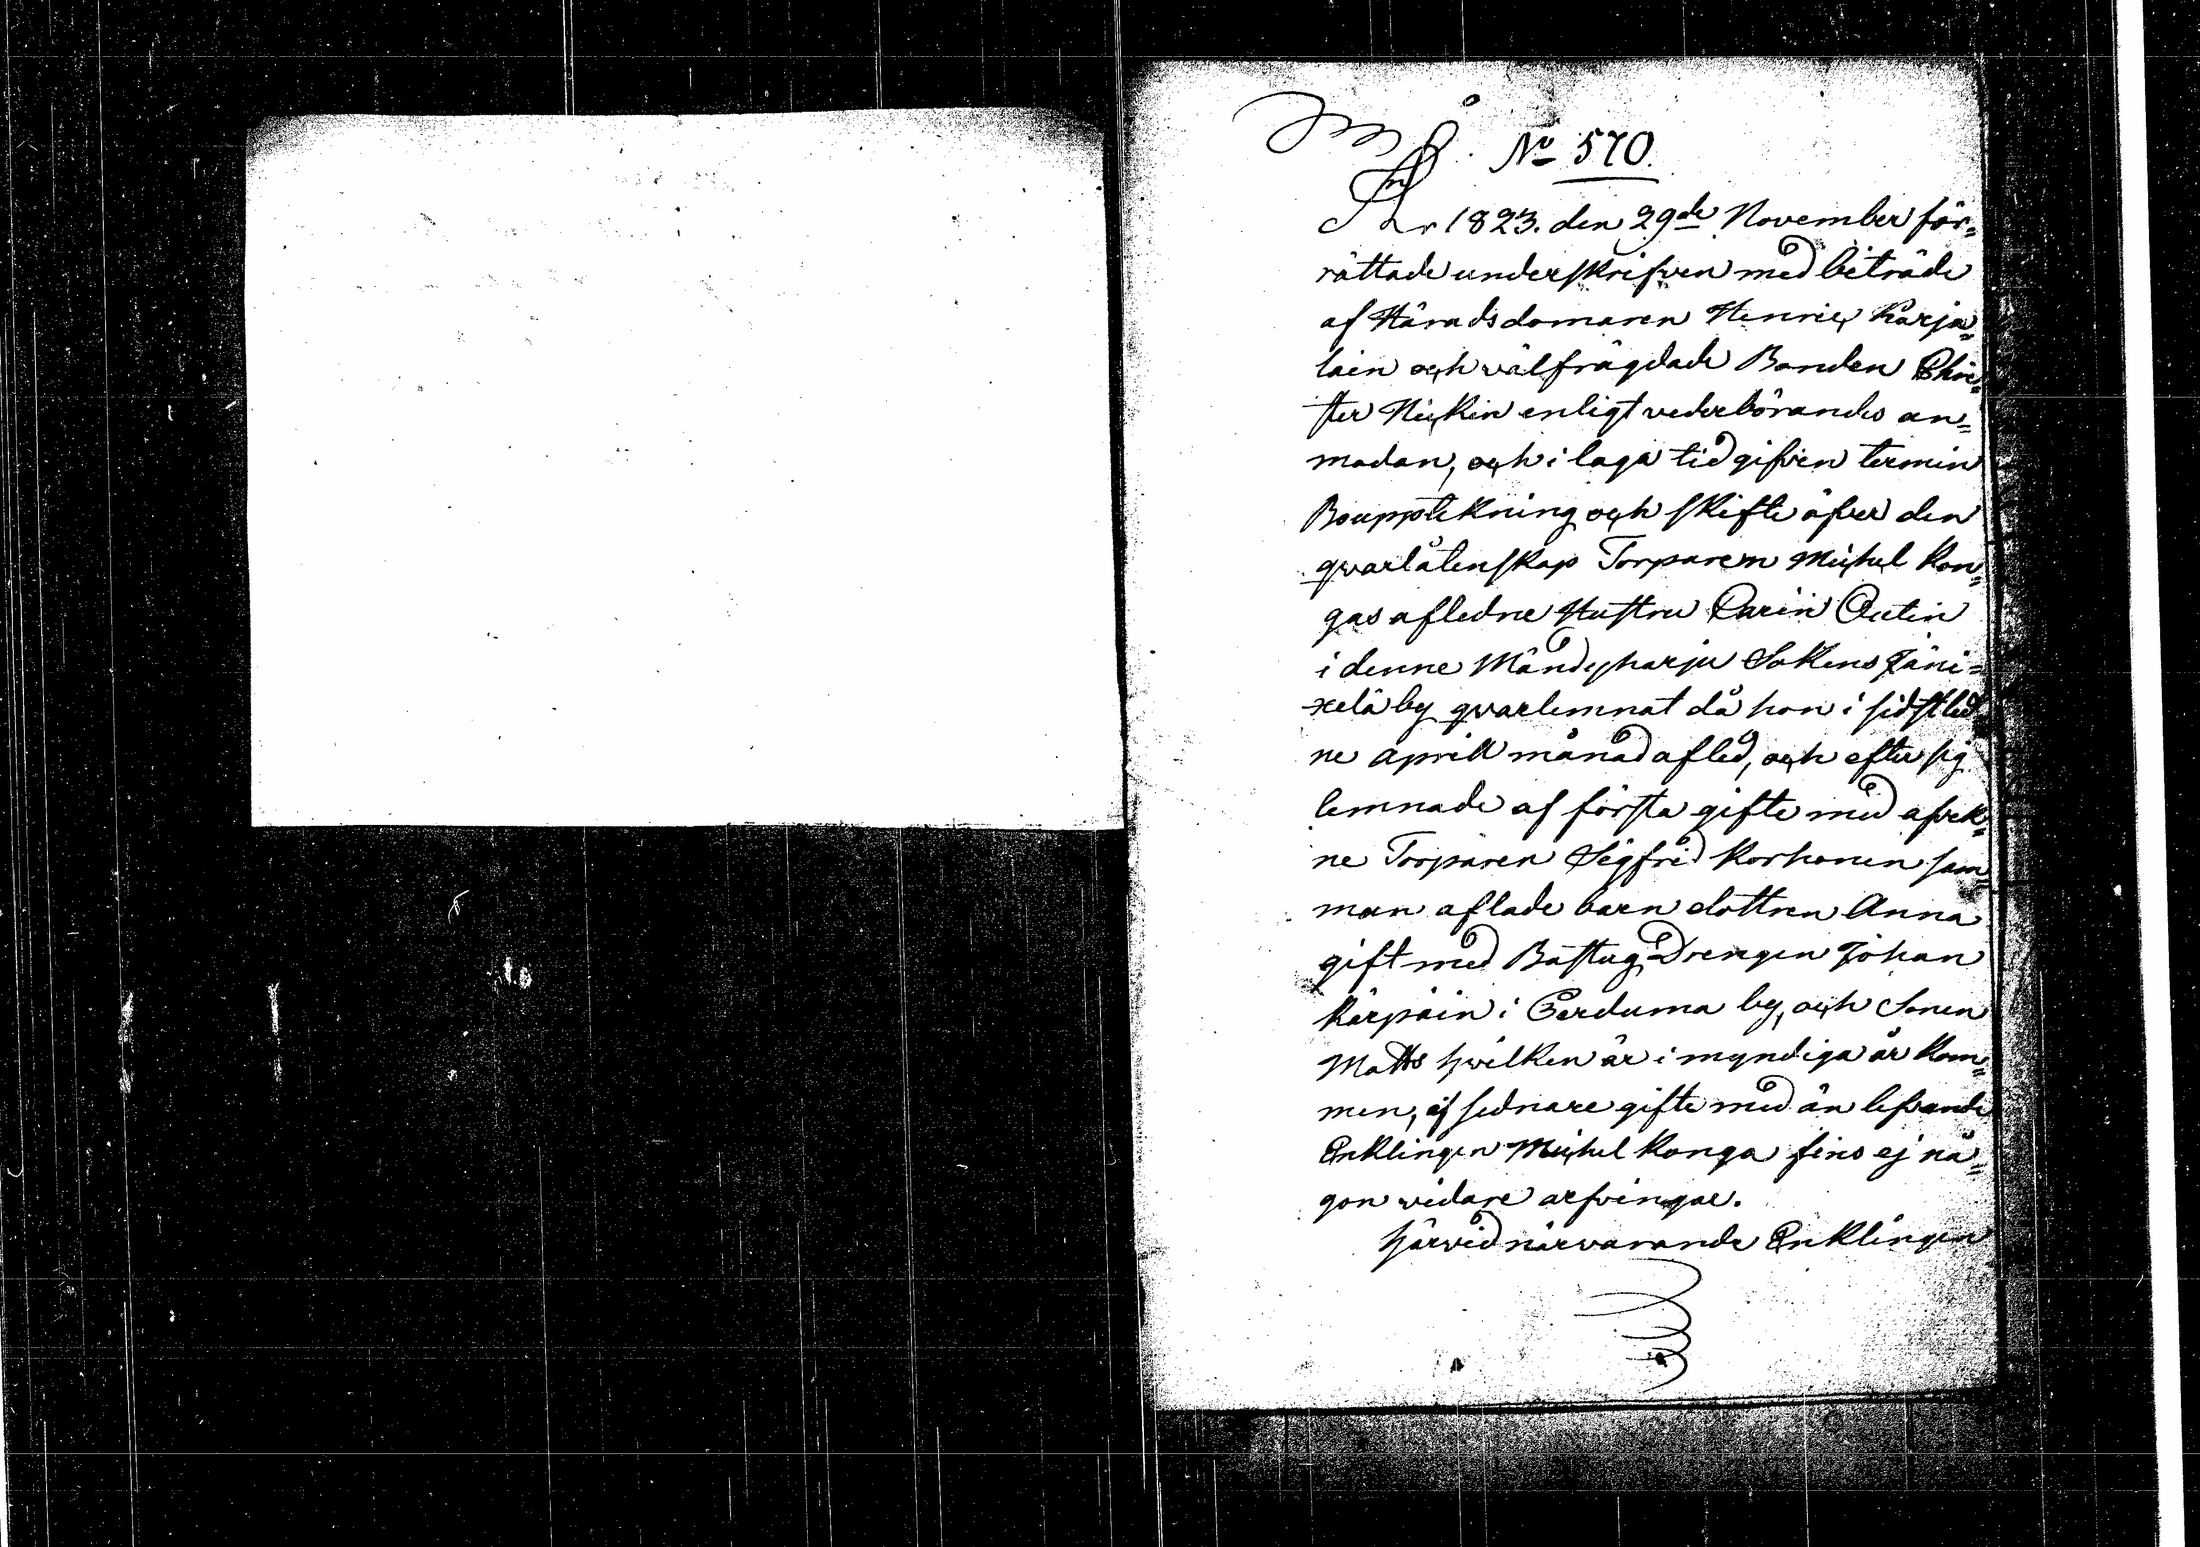 No 570.
År 1823. den 29de November för=
rättade underskrifven med biträde
af Häradsdomaren Henric Karja=
lain och välfrägdade Bonden Chri=
ster Hickin enligt vederbörandes an=
modan, och i laga tid gifven termin
Bouppteckning och skifte öfver den
qvarlåtenskap Torparen Michel Kon=
gas afledne Hustru Carin Outin
i denne Mändyharju Sokens Jäni=
xelä by qvarlemnat då hon i sidstled
ne Aprill månad afled, och efter sig
lemnade af första gifte med afvek=
ne Torparen Sigfrid Korhonen sam=
man aflade barn dottren Anna
gift med Båstug Drengen Johan
Kärpäin i Gerduma by, och Sonen
Matts hvilken är i myndiga år kom=
men, af sednare gifte med än lefvande
Enklingen Michel Konga fins ej nå=
gon vidare arfvingar.
Härvid närvarande Enklingen